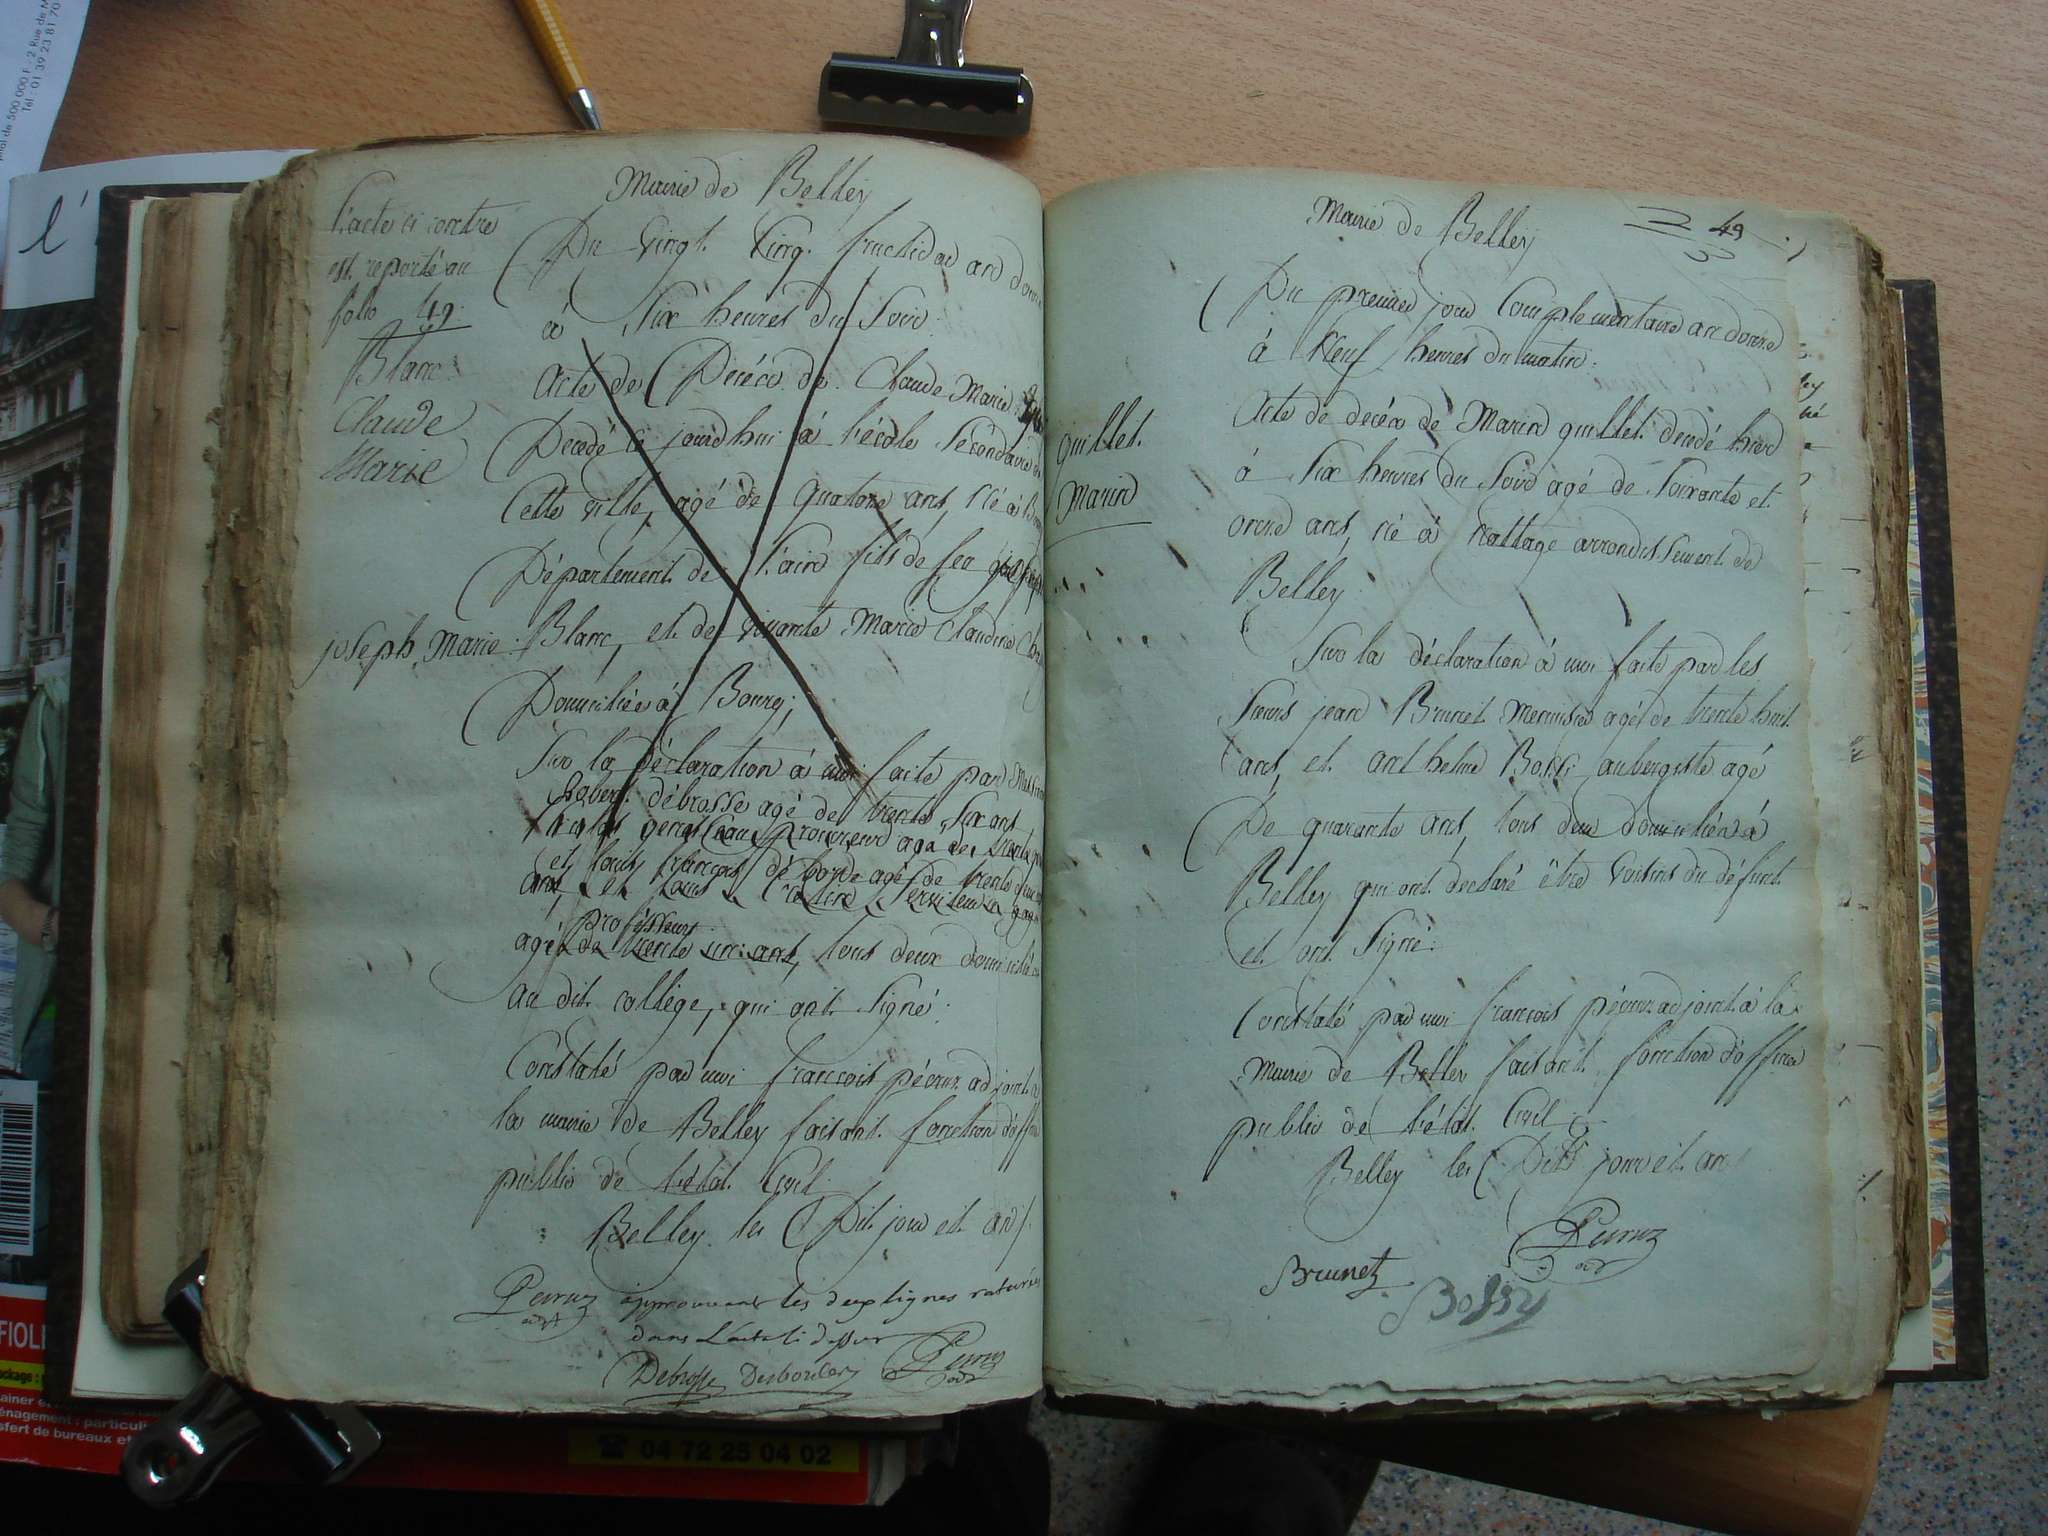 Mairie de Belley
l'acte ci contre
est reporté au
folio 49.
Blanc
Claude
Marie
Du vingt Cinq. fructidor an
à Six heures du Soir.
Acte de Décéd de Claude Marie
Décédé ce jourd'hui à l'école Sécondaire de
Cette ville, agé de quatorze ans, Né à
Département de l'ain fils de feu
joseph Marie Blanc, et de vivante Marie Claudine
Domiciliée à Bourg;
Sur la déclaration à moi faite par
Robert débrosse agé de trente Six ans
et louis françois agé de trente
professeurs
agé de trente cinq ans, tous deux domicilié
au dit collège, qui ont Signé.
Constaté par moi françois péeruz adjoint à
la mairie de Belley faisant fonction d'off
public de l'état Civil.
Belley les Dit jour et an
Peeruz
adt
approuvant les deux lignes raturées
dans l'acte ci dessus
Debrosse Desbordes Peeruz
adt
Mairie de Belley
49
Du premier jour Complementaire an douze
à Neuf heures du matin.
quillet.
Marin
Acte de décéd de Marin quillet. decédé hier
à Six heures du Soir agé de Soixante et
onze ans, né à Nattage arrondissement de
Belley.
Sur la déclaration à moi faite par les
Sieurs jean Brunet Menuisier agé de trente huit
ans, et anthelme Bossi aubergiste agé
De quarante ans, tous deux domiciliés à
Belley qui ont declaré être Voisins du défunt
et ont Signé.
Constaté par moi françois péeruz adjoint à la
Mairie de Belley faisant fonction d'officier
public de l'état Civil
Belley les Dits jour et an
Peeruz
adt
Brunet
Bossy
l'
Tél : 01 39 23 81 70
04 72 25 04 02